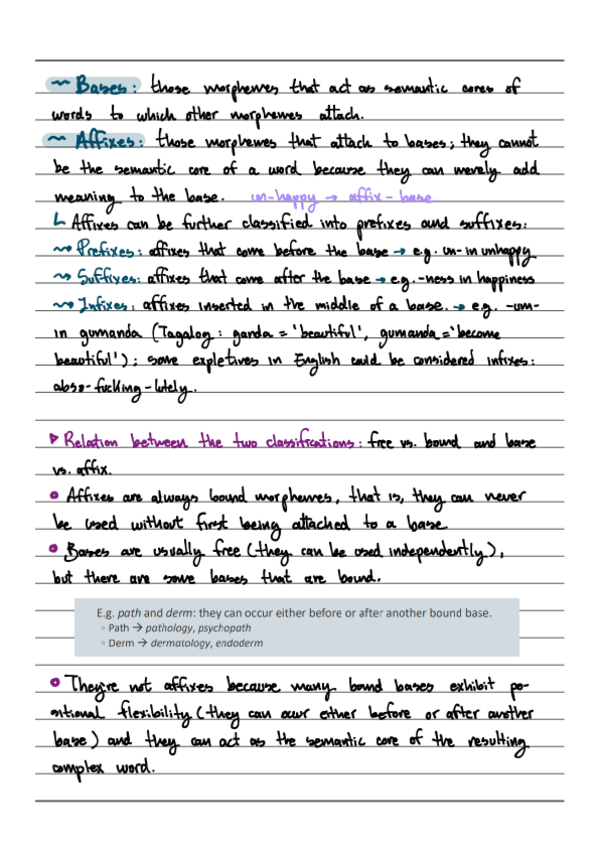 ~ Bases: those morphemes that act as semantic cores of
words to which other morphemes attach.
~ Affixes: those morphemes that attach to bases; they cannot
be the semantic core of a word because they can merely add
meaning to the base. un-happy → affix - base
↳ Affixes can be further classified into prefixes and suffixes:
~ Prefixes: affixes that come before the base → e.g. un- in unhappy
~ Suffixes: affixes that come after the base → e.g. -ness in happiness
~ Infixes: affixes inserted in the middle of a base. → e.g. -um-
in gumanda (Tagalog: ganda = 'beautiful', gumanda = 'become
beautiful'); some expletives in English could be considered infixes:
abso-fucking-lutely.
▸ Relation between the two classifications: free vs. bound and base
vs. affix.
• Affixes are always bound morphemes, that is, they can never
be used without first being attached to a base.
• Bases are usually free (they can be used independently),
but there are some bases that are bound.
E.g. path and derm: they can occur either before or after another bound base.
◦ Path → pathology, psychopath
◦ Derm → dermatology, endoderm
• They're not affixes because many bound bases exhibit po-
sitional flexibility (they can occur either before or after another
base) and they can act as the semantic core of the resulting
complex word.